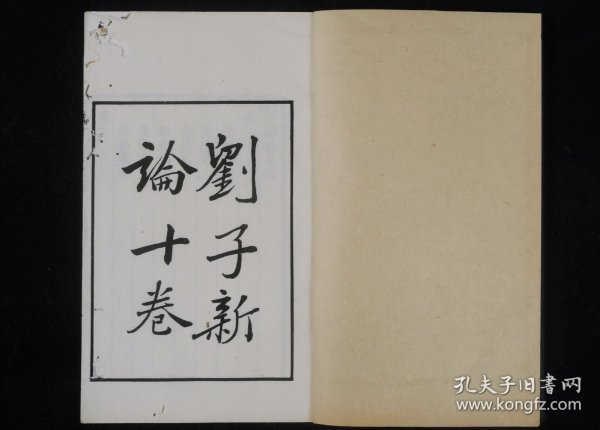 劉子新
論十卷
孔夫子旧书网
www.kongfz.com